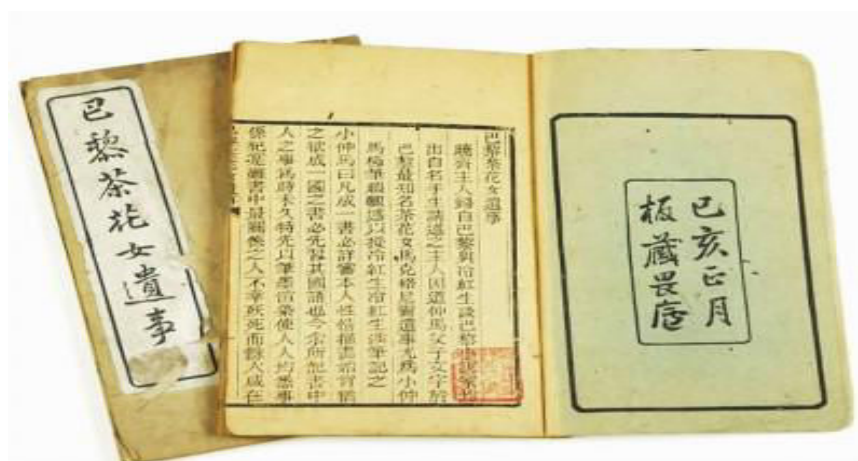 巴黎茶花女遺事
己亥正月
板藏畏廬
巴黎茶花女遺事
曉齋主人歸自巴黎與冷紅生談巴黎小說家均
出自名手生請述之主人因道仲馬父子文字於
巴黎最知名茶花女馬克格尼爾遺事尤爲小仲
馬極筆暇輒述以授冷紅生冷紅生涉筆記之
小仲馬曰凡成一書必詳審本人性情描畫始肖猶
之欲成一國之書必先習其國語也今余所記書中
人之事爲時未久特先以筆墨渲染使人人均悉事
係紀寔雖書中最關係之人不幸殀死而餘人咸在